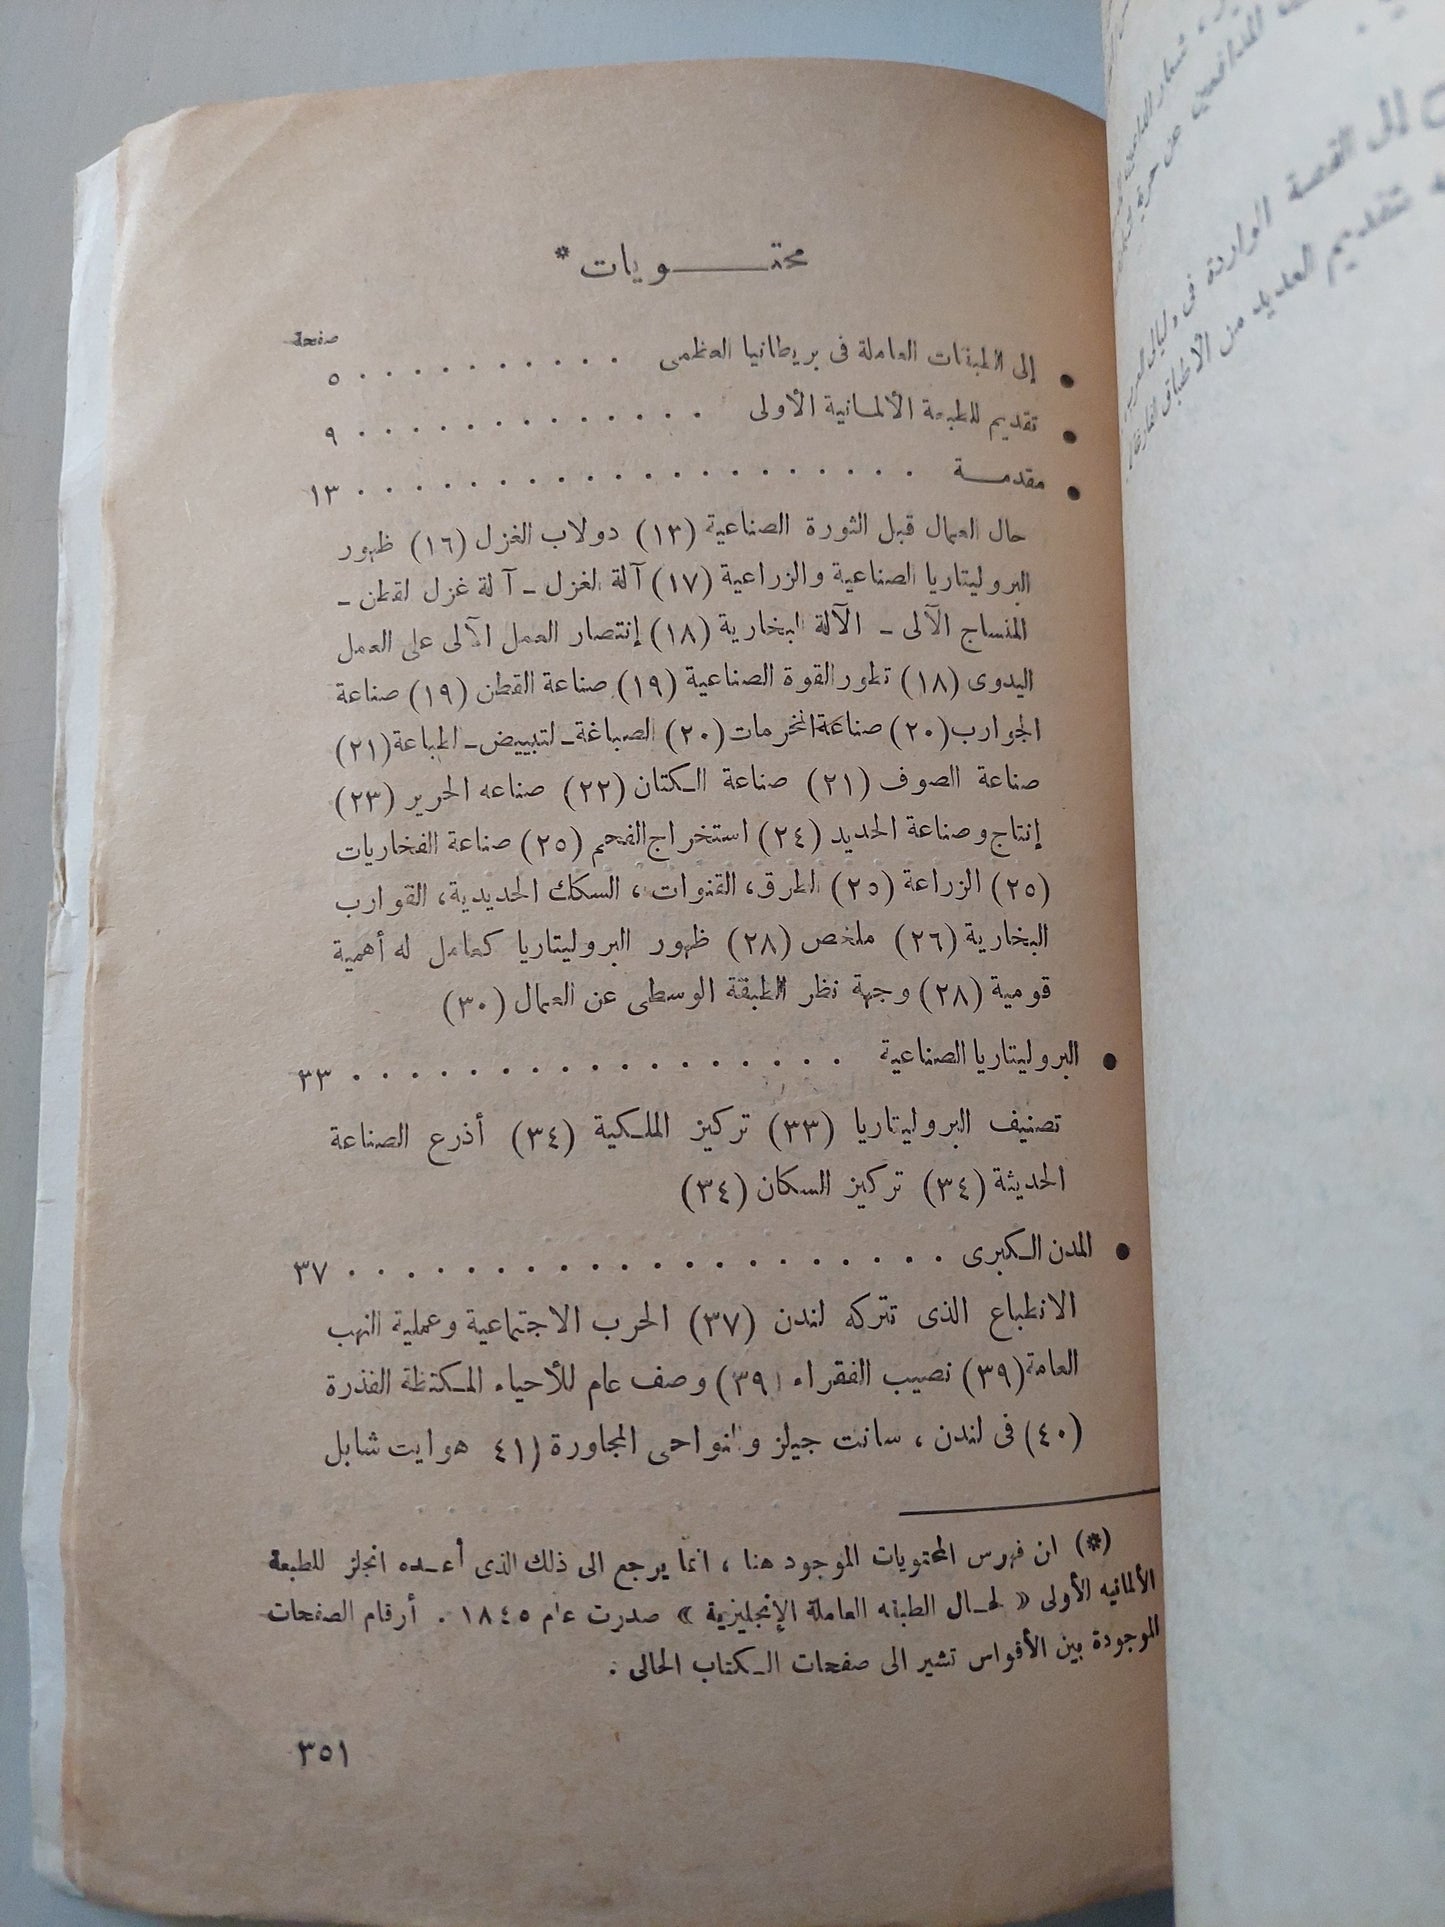 محتـــــويات *
صفحة
● إلى الطبقات العاملة فى بريطانيا العظمى . . . . . . . . . . ٥
● تقديم للطبعة الألمانية الأولى . . . . . . . . . . . . . ٩
● مقدمــة . . . . . . . . . . . . . . . . . . . ١٣
حال العمال قبل الثورة الصناعية (١٣) دولاب الغزل (١٦) ظهور
البروليتاريا الصناعية والزراعية (١٧) آلة الغزل ـ آلة غزل لقطن ـ
المنساج الآلى ـ الآلة البخارية (١٨) إنتصار العمل الآلى على العمل
اليدوى (١٨) تطور القوة الصناعية (١٩) صناعة القطن (١٩) صناعة
الجوارب (٢٠) صناعة المخرمات (٢٠) الصباغة ـ لتبييض ـ الطباعة (٢١)
صناعة الصوف (٢١) صناعة الـكتان (٢٢) صناعه الحرير (٢٣)
إنتاج وصناعة الحديد (٢٤) استخراج الفحم (٢٥) صناعة الفخاريات
(٢٥) الزراعة (٢٥) الطرق، القنوات، السكك الحديدية، القوارب
البخارية (٢٦) ملخص (٢٨) ظهور البروليتاريا كعامل له أهمية
قومية (٢٨) وجهة نظر الطبقة الوسطى عن العمال (٣٠)
● البروليتاريا الصناعية . . . . . . . . . . . . . . . . ٣٣
تصنيف البروليتاريا (٣٣) تركيز الملـكية (٣٤) أذرع الصناعة
الحديثة (٣٤) تركيز السكان (٣٤)
● المدن الـكبرى . . . . . . . . . . . . . . . . . . . ٣٧
الانطباع الذى تتركه لندن (٣٧) الحرب الاجتماعية وعملية النهب
العامة (٣٩) نصيب الفقراء (٣٩) وصف عام للأحياء المـكتظة القذرة
(٤٠) فى لندن ، سانت جيلز والنواحى المجاورة (٤١ هوايت شابل
(*) ان فهرس المحتويات الموجود هنا ، انما يرجع الى ذلك الذى أعـده انجلز للطبعة
الألمانيه الأولى « لحـال الطبقه العاملة الإنجليزية » صدرت عام ١٨٤٥ . أرقام الصفحات
الموجودة بين الأقواس تشير الى صفحات الـكتاب الحالى .
٣٥١
إلى القصة الواردة فى
تقديم العديد من الأطباق